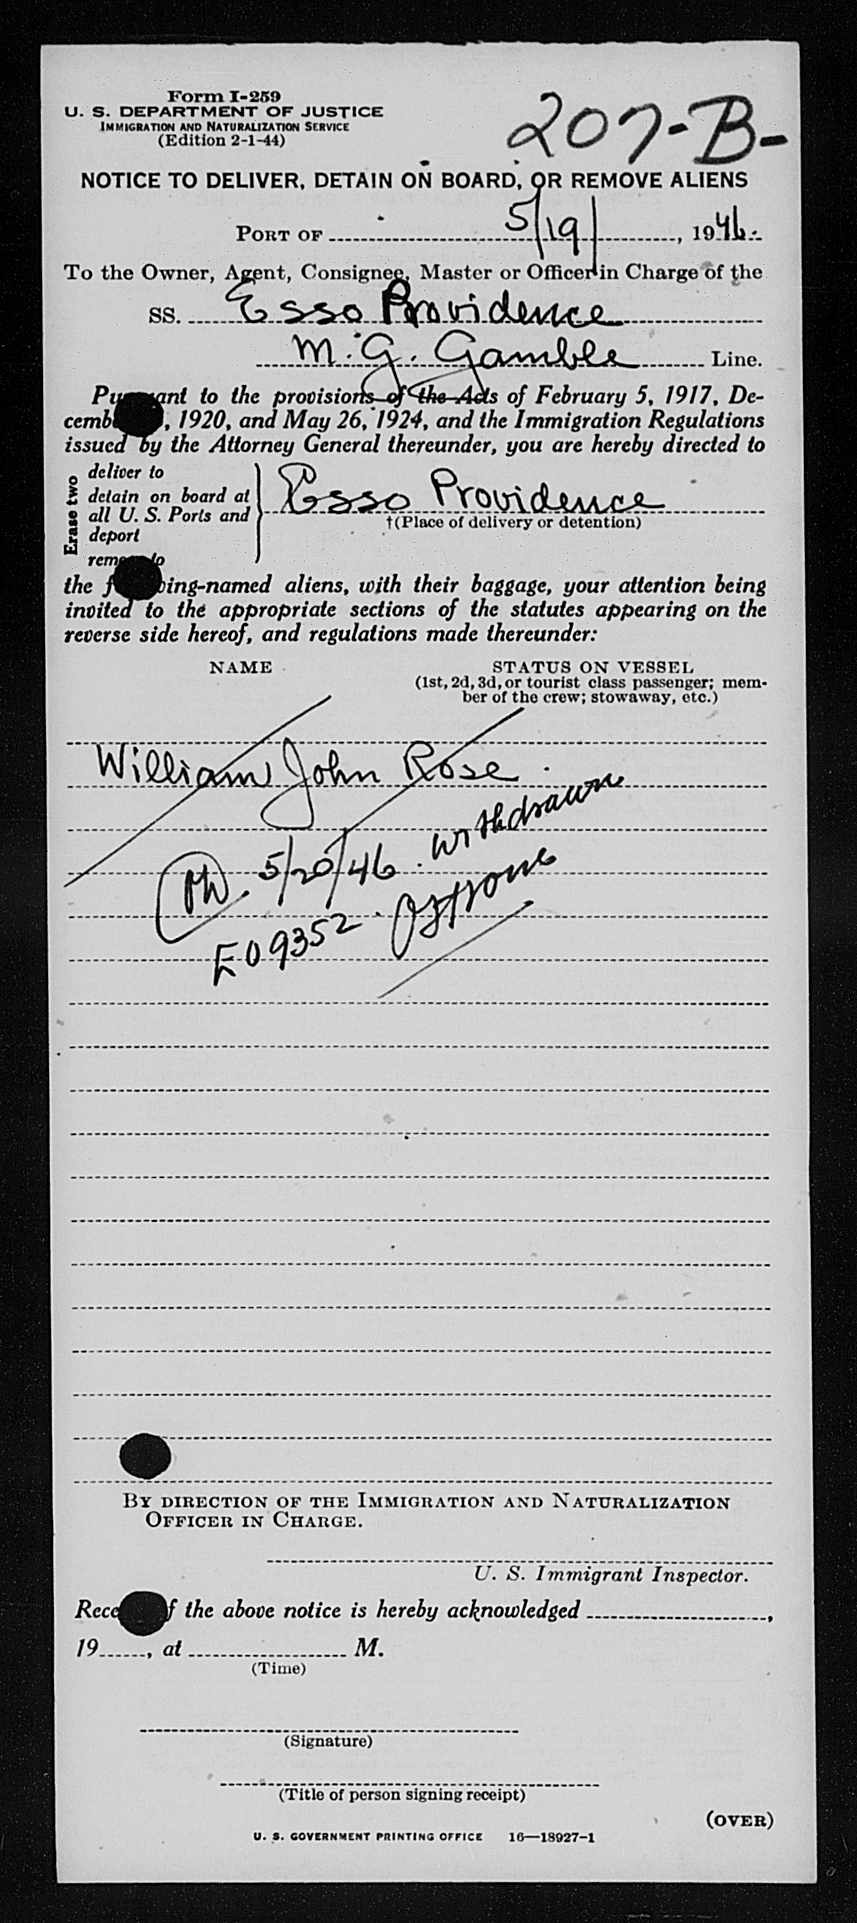 Form I-259
U. S. DEPARTMENT OF JUSTICE
IMMIGRATION AND NATURALIZATION SERVICE
(Edition 2-1-44)
207-B-
NOTICE TO DELIVER, DETAIN ON BOARD, OR REMOVE ALIENS
PORT OF 5/19/, 1946.
To the Owner, Agent, Consignee, Master or Officer in Charge of the
SS. Esso Providence
M. G. Gamble Line.
Pu ant to the provisions of the Acts of February 5, 1917, De-
cemb , 1920, and May 26, 1924, and the Immigration Regulations
issued by the Attorney General thereunder, you are hereby directed to
Erase two
deliver to
detain on board at
all U. S. Ports and
deport
rem to
Esso Providence
†(Place of delivery or detention)
the f ing-named aliens, with their baggage, your attention being
invited to the appropriate sections of the statutes appearing on the
reverse side hereof, and regulations made thereunder:
NAME STATUS ON VESSEL
(1st, 2d, 3d, or tourist class passenger; mem-
ber of the crew; stowaway, etc.)
William John Rose
5/20/46. withdrawn
E09352.
BY DIRECTION OF THE IMMIGRATION AND NATURALIZATION
OFFICER IN CHARGE.
U. S. Immigrant Inspector.
Rece f the above notice is hereby acknowledged ,
19 , at M.
(Time)
(Signature)
(Title of person signing receipt)
(OVER)
U. S. GOVERNMENT PRINTING OFFICE 16—18927-1